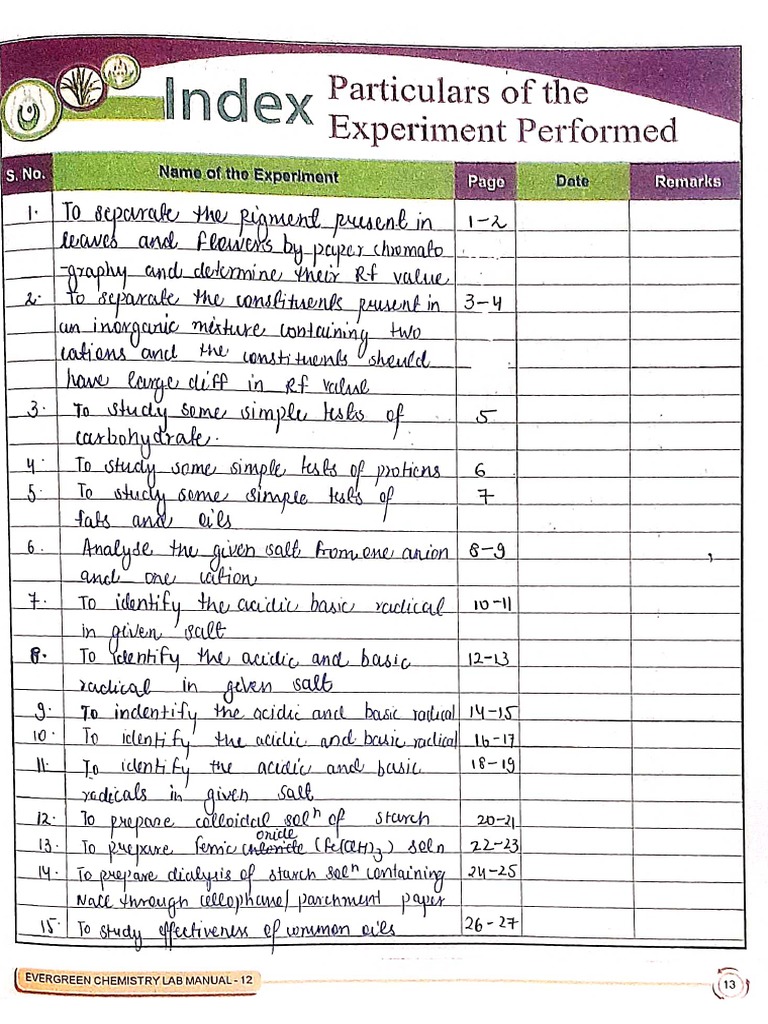 Index Particulars of the
Experiment Performed
S. No. Name of the Experiment Page Date Remarks
1. To separate the pigment present in 1-2
leaves and flowers by paper chromato
-graphy and determine their Rf value
2. To separate the constituents present in 3-4
an inorganic mixture containing two
cations and the constituents should
have large diff in Rf value
3. To study some simple tests of 5
carbohydrate.
4. To study some simple tests of protiens 6
5. To study some simple tests of 7
fats and oils
6. Analyse the given salt from one anion 8-9
and one cation
7. To identify the acidic basic radical 10-11
in given salt
8. To identify the acidic and basic 12-13
radical in given salt
9. To indentify the acidic and basic radical 14-15
10. To identify the acidic and basic radical 16-17
11. To identify the acidic and basic 18-19
radicals in given salt
12. To prepare colloidal solⁿ of starch 20-21
oxide
13. To prepare ferric chloride (Fe(OH)3) soln 22-23
14. To prepare dialysis of starch solⁿ containing 24-25
Nacl through cellophane/ parchment paper
15. To study effectiveness of common oils 26-27
EVERGREEN CHEMISTRY LAB MANUAL - 12
13